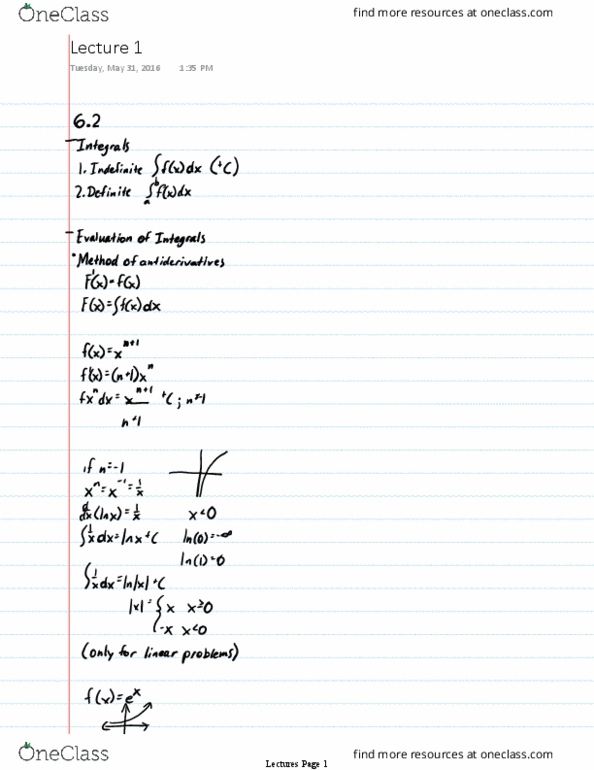 OneClass
find more resources at oneclass.com
Lecture 1
Tuesday, May 31, 2016 1:35 PM
6.2
- Integrals
1. Indefinite ∫f(x)dx (+C)
2. Definite ∫ₐᵇf(x)dx
- Evaluation of Integrals
• Method of antiderivatives
F'(x)=f(x)
F(x)=∫f(x)dx
f(x)=xⁿ⁺¹
f'(x)=(n+1)xⁿ
∫xⁿdx=xⁿ⁺¹ +C ; n≠-1
n+1
if n=-1
xⁿ=x⁻¹=1/x
d/dx(lnx)=1/x x<0
∫1/x dx=lnx+C ln(0)=-∞
ln(1)=0
∫1/x dx=ln|x|+C
|x|={x x≥0
-x x<0
(only for linear problems)
f(x)=eˣ
OneClass
find more resources at oneclass.com
Lectures Page 1